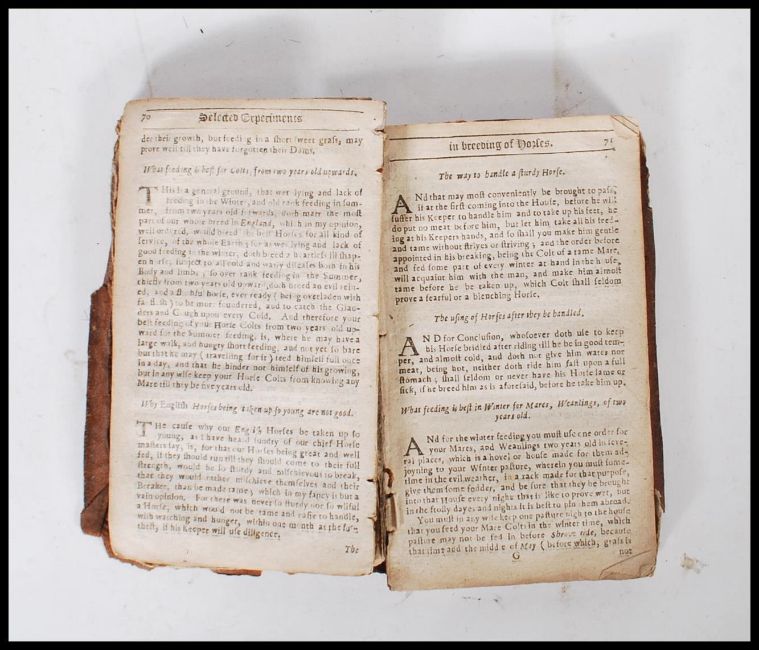 70 Selected Experiments
der their growth, but feeding in a short sweet grass, may
prove well till they have forgotten their Dams.
What feeding is best for Colts, from two years old upwards.
THis is a general ground, that wet lying and lack of
feeding in the Winter, and old rank feeding in Sum-
mer, from two years old upwards, doth marr the most
part of our whole breed in England, which in my opinion,
well ordered, would breed the best Horses for all kind of
service, of the whole Earth; for as wet lying and lack of
good feeding in the winter, doth breed a
en horse, subject to all cold and watry diseases both in his
Body and limbs; so over rank feeding in the Summer,
chiefly from two years old upward, doth breed an evil
ed, and a horse, ever ready (being overladen with
) to be foundered, and to catch the Glan-
ders and Cough upon every Cold. And therefore your
best feeding of your Horse Colts from two years old up-
ward for the Summer feeding, is, where he may have a
large walk, and hungry short feeding, and not yet so bare
but that he may (travelling for it) feed himself full once
in a day, and that he hinder not himself of his growing,
but in any wise keep your Horse Colts from knowing any
Mare till they be five years old.
Why English Horses being taken up so young are not good.
THe cause why our English Horses be taken up so
young, as I have heard sundry of our chief Horse
masters say, is, for that our Horses being great and well
fed, if they should run till they should come to their full
strength, would be so sturdy and mischievous to break,
that they would rather mischieve themselves and their
Breaker, than be made tame, which in my fancy is but a
vain opinion. For there was never so sturdy nor so wilful
a Horse, which would not be tame and easie to handle,
with watching and hunger, within one month at the fur-
thest, if his Keeper will use diligence.
The
in breeding of Horses. 71
The way to handle a sturdy Horse.
ANd that may most conveniently be brought to pass,
if at the first coming into the House, before he will
suffer his Keeper to handle him and to take up his feet, he
do put no meat before him, but let him take all his feed-
ing at his Keepers hands, and so shall you make him gentle
and tame without stripes or striving; and the order before
appointed in his breaking, being the Colt of a tame Mare,
and fed some part of every winter at hand in the house,
will acquaint him with the man, and make him almost
tame before he be taken up, which Colt shall seldom
prove a fearful or a blenching Horse.
The using of Horses after they be handled.
AND for Conclusion, whosoever doth use to keep
his Horse bridled after riding till he be in good tem-
per, and almost cold, and doth not give him water nor
meat, being hot, neither doth ride him fast upon a full
stomach; shall seldom or never have his Horse lame or
sick, if he breed him as is aforesaid, before he take him up.
What feeding is best in Winter for Mares, Weanlings, of two
years old.
ANd for the winter feeding you must use one order for
your Mares, and Weanlings two years old in seve-
ral places, which is a hovel or house made for them ad-
joyning to your Winter pasture, wherein you must some-
time in the evil weather, in a rack made for that purpose,
give them some fodder, and be sure that they be brought
into that House every night that is like to prove wet, but
in the frosty dayes and nights it is best to put them abroad.
You must in any wise keep one pasture nigh to the house
that you feed your Mare Colts in the winter time, which
pasture may not be fed in before Shrove tide, because
that time and the middle of May (before which, grass is
G not